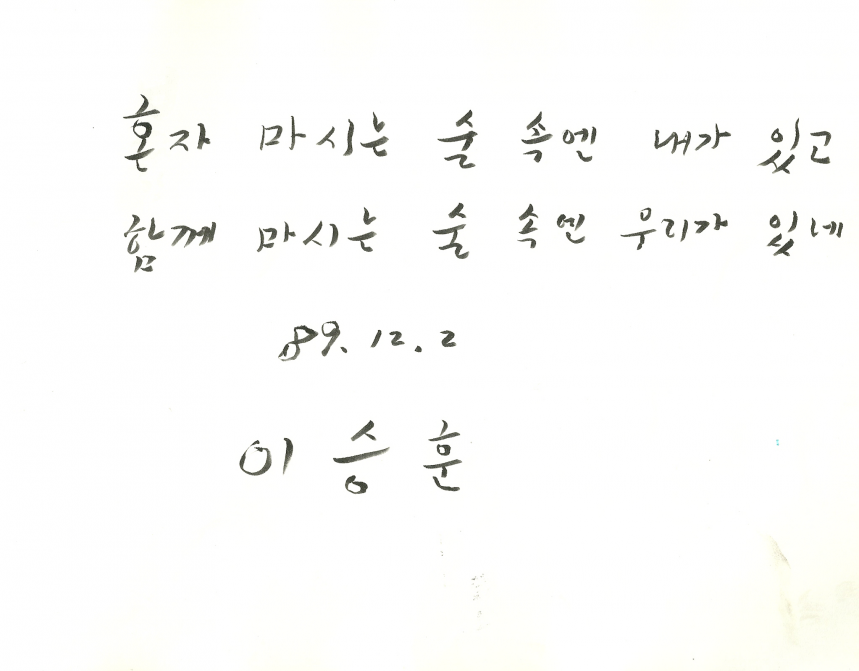 혼자 마시는 술 속엔 내가 있고
함께 마시는 술 속엔 우리가 있네
89. 12. 2
이승훈